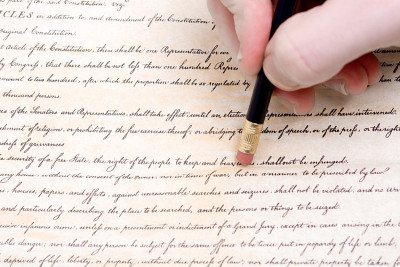 part of this Constitution
CLES in addition to, and amendment of the Constitution
iginal Constitution.
t article of the Constitution, there shall be one Representative for eve
by Congress, that there shall be not less than one hundred Repres
amount to two hundred, after which the proportion shall be so regulated by
thousand persons.
es of the Senators and Representatives, shall take effect, until an election shall have intervened.
shment of religion, or prohibiting the free exercise thereof; or abridging dom of speech, or of the press, or the right
dress of grievances
security of a free State, the right of the people to keep and bear s, shall not be infringed.
ny house, without the consent of the owner, nor in time of war, but in a manner to be prescribed by law
s, houses, papers, and effects, against unreasonable searches and seizures, shall not be violated, and no Wa
and particularly describing the place to be searched, and the persons or things to be seized.
wise infamous crime, unless on a presentment or indictment of a Grand Jury, except in cases arising in the l
ublic danger; nor shall any person be subject for the same offence to be twice put in jeopardy of life or limb,
deprived of life, liberty, or property, without due process of law; nor shall private property be taken for